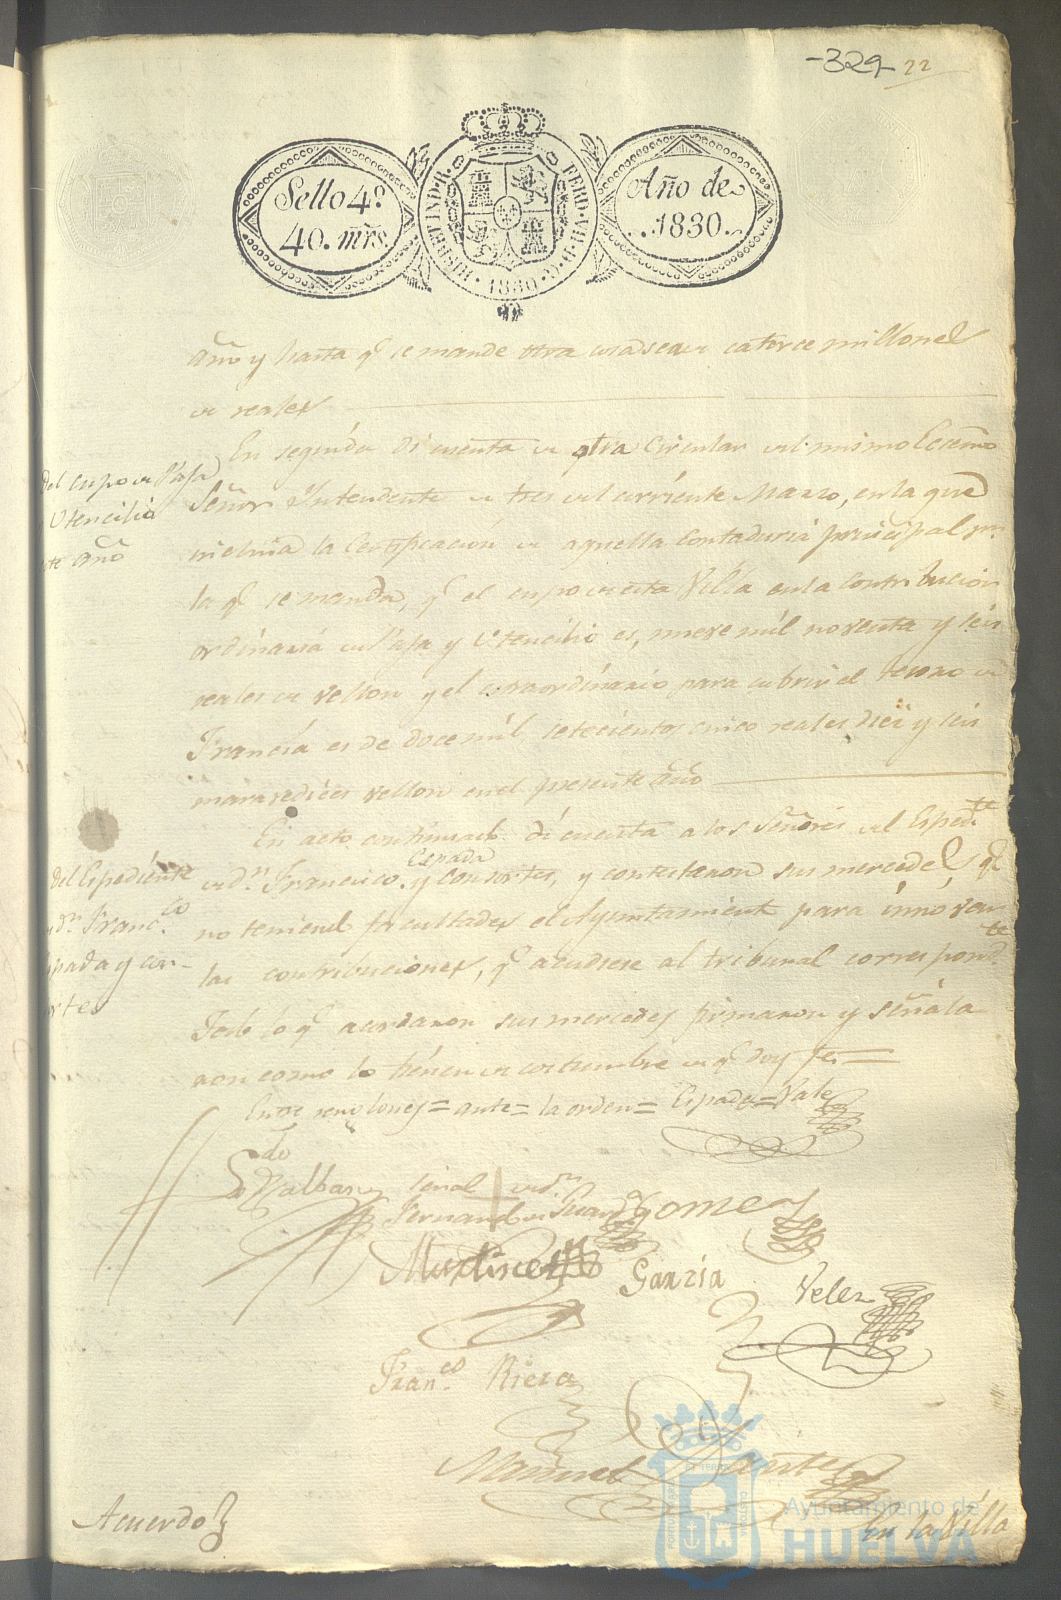 -329- 22
Sello 4º.
40. mrs.
HISP. ET IND. R. FERD. VII. D. G. 1830.
Año de
1830.
año y hasta q.e se mande otra cosa sea de catorce millones
de reales
En seguida di cuenta de otra Circular del mismo Excmo
Señor Intendente de tres del corriente Marzo, en la que
incluia la Certificacion de aquella Contaduria principal por
la q.e se manda, q.e el cupo de esta Villa en la contribucion
ordinaria de Paja y Utencilio es, nueve mil noventa y seis
reales de vellon y el extraordinario para cubrir el tesoro de
Francia es de doce mil setecientos cinco reales diez y seis
maravedices vellon en el presente año
Del cupo de Paja
Utencilio
año
En acto continuado di cuenta a los Señores del Exped.te
de D.n Francisco Espada y Consortes, y contestaron sus mercedes q.e
no teniend facultades el Ayuntamient para innovar
las contribuciones, q.e acudiese al tribunal correspond.te
Todo lo q.e acordaron sus mercedes firmaron y señala
ron como lo tienen de costumbre de q.e doy fe =
Del Espediente
d.n Franc.co
pada y con-
rtes
Entre renglones = ante = la orden = Espada = Vale
Ldo
Balbas
señal de D.n
Fernand de
Gomez
Martinez
Garzia
Velez
Fran.co Riera
Manuel
Acuerdo
En la Villa
Ayuntamiento de
HUELVA